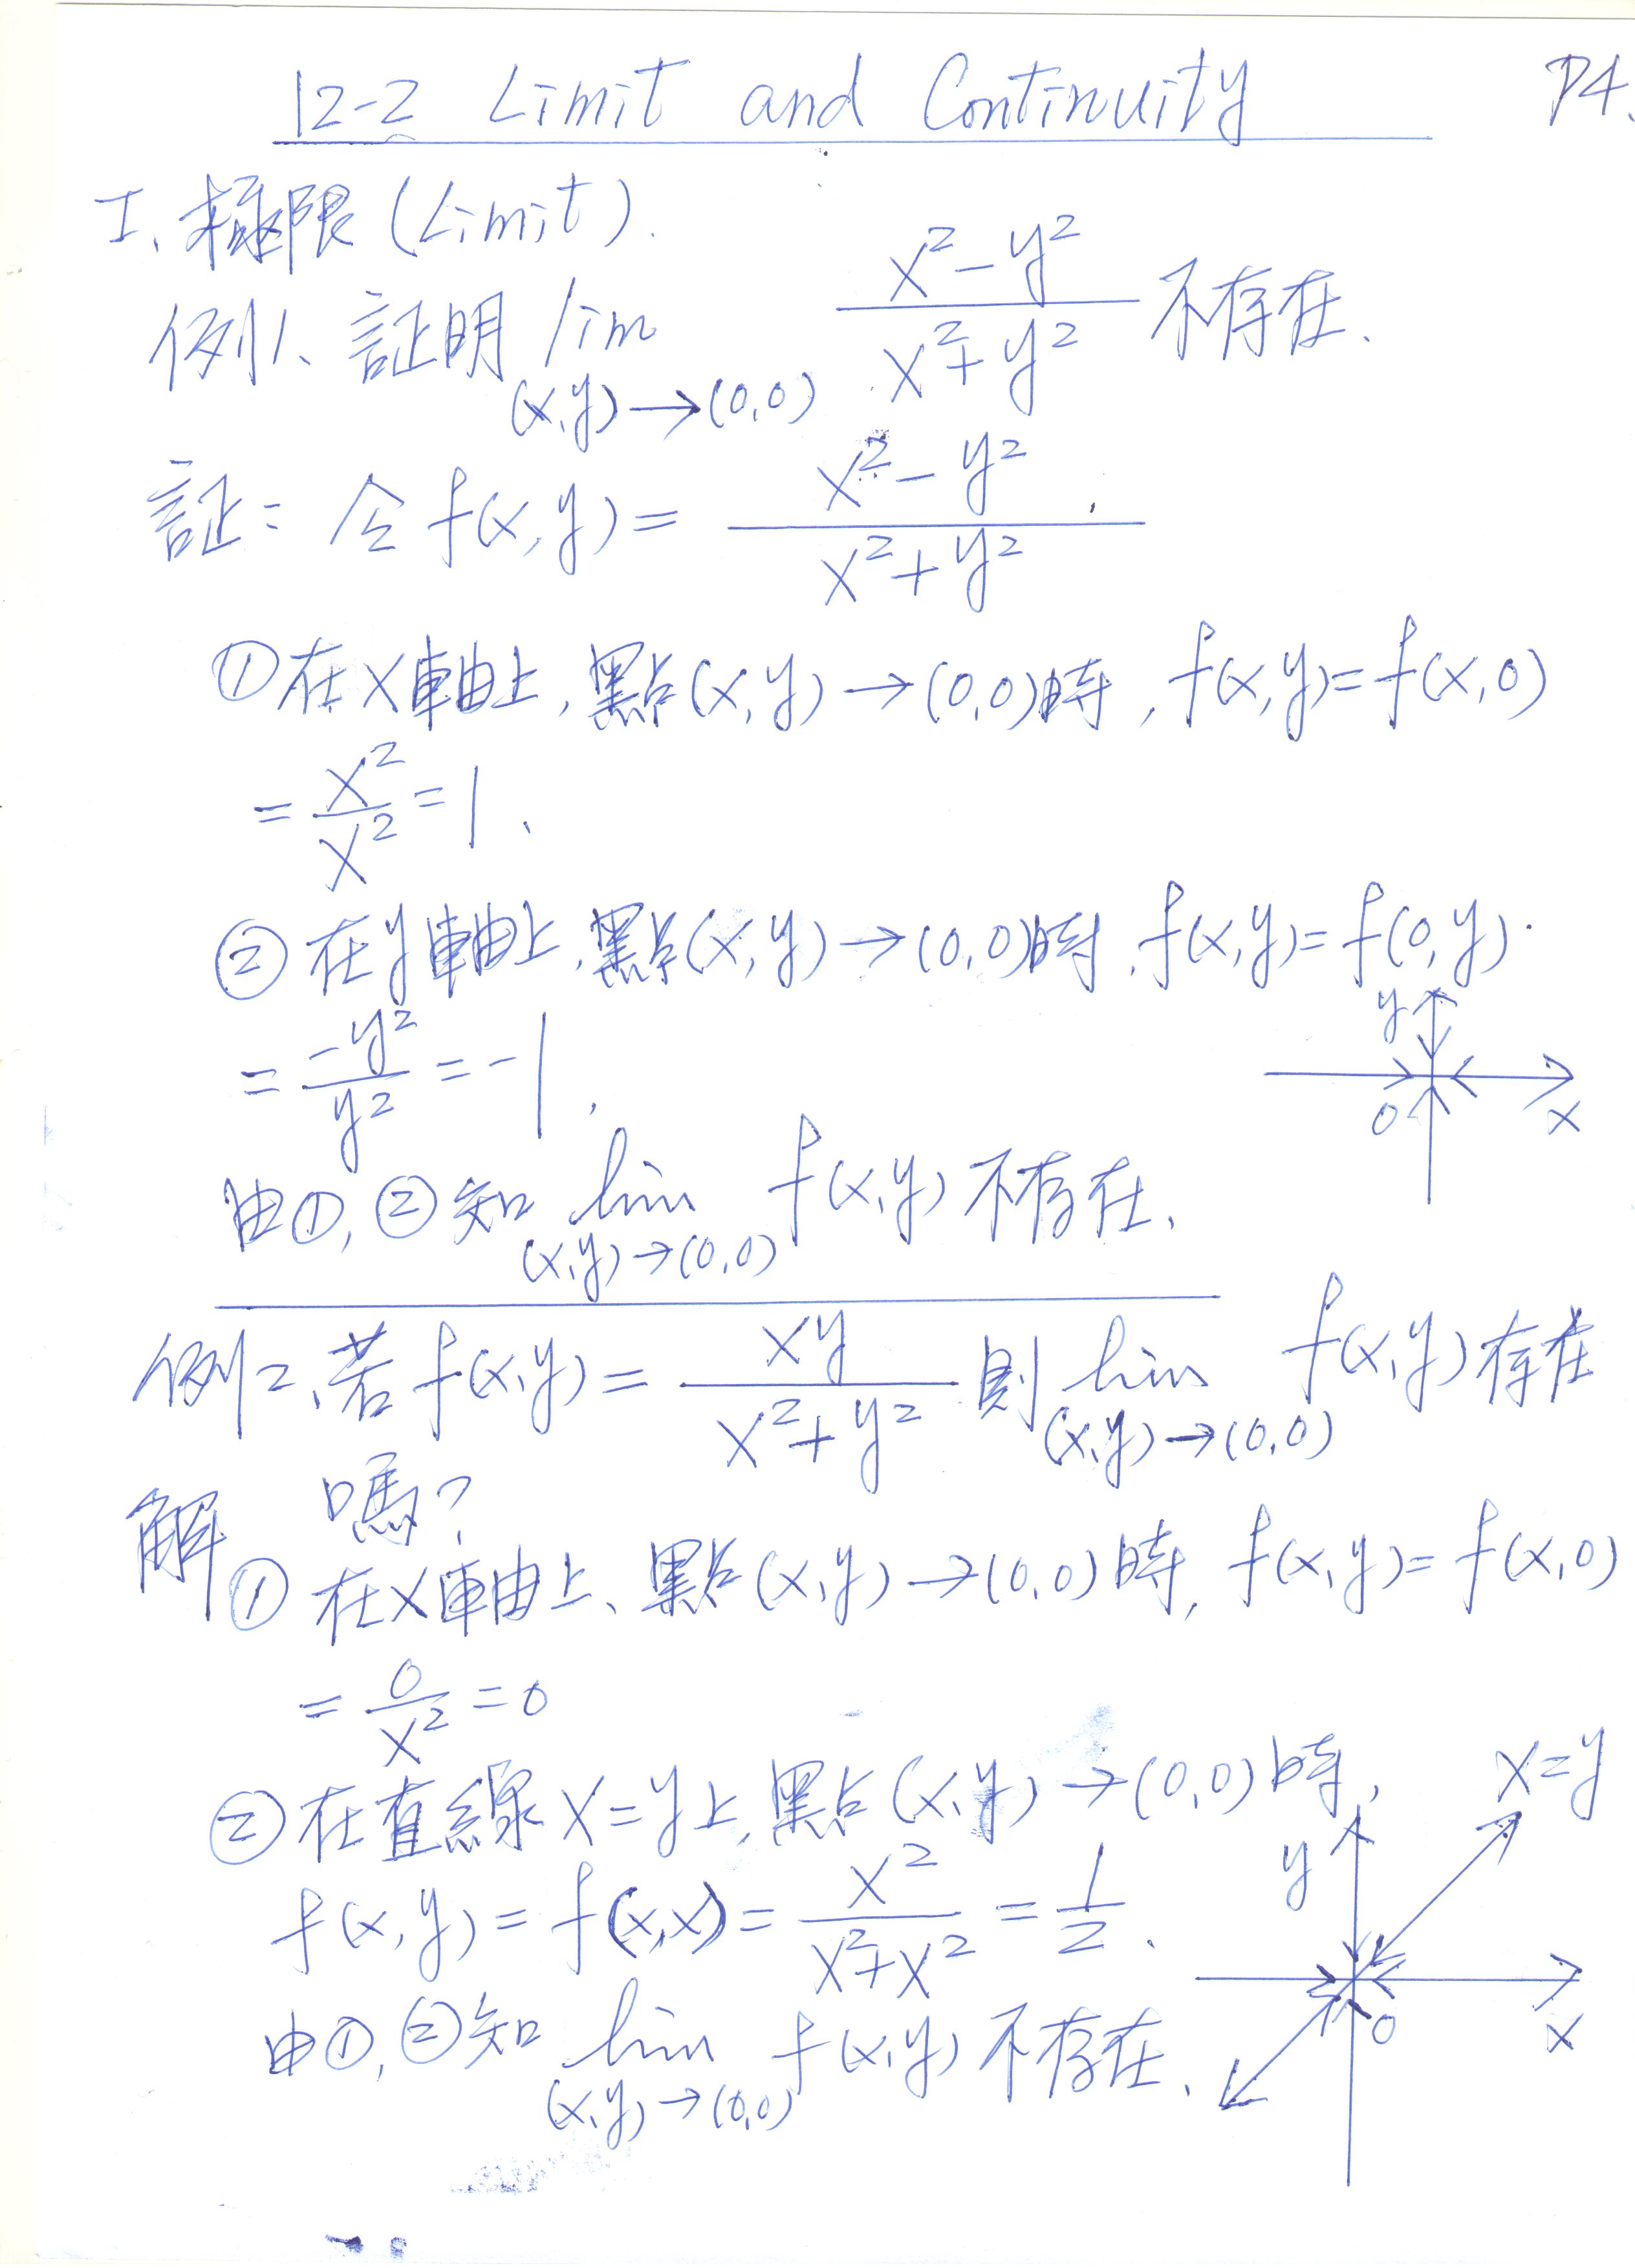 12-2 Limit and Continuity P4.
I、極限 (Limit).
例1、証明 lim_{(x,y)→(0,0)} \frac{x²-y²}{x²+y²} 不存在.
証: 令 f(x,y) = \frac{x²-y²}{x²+y²}.
① 在 x 軸上, 點(x,y)→(0,0)時, f(x,y)=f(x,0)
= \frac{x²}{x²} = 1、
② 在 y 軸上, 點(x,y)→(0,0)時, f(x,y)=f(0,y).
= \frac{-y²}{y²} = -1,
y
0 x
由①,②知 lim_{(x,y)→(0,0)} f(x,y) 不存在、
例2、若 f(x,y) = \frac{xy}{x²+y²} 則 lim_{(x,y)→(0,0)} f(x,y) 存在
嗎?
解 ① 在x軸上、點(x,y)→(0,0)時, f(x,y)=f(x,0)
= \frac{0}{x²} = 0
② 在直線 x=y上, 點(x,y)→(0,0)時,
x=y
f(x,y) = f(x,x) = \frac{x²}{x²+x²} = \frac{1}{2}、
y
0 x
由①,②知 lim_{(x,y)→(0,0)} f(x,y) 不存在、